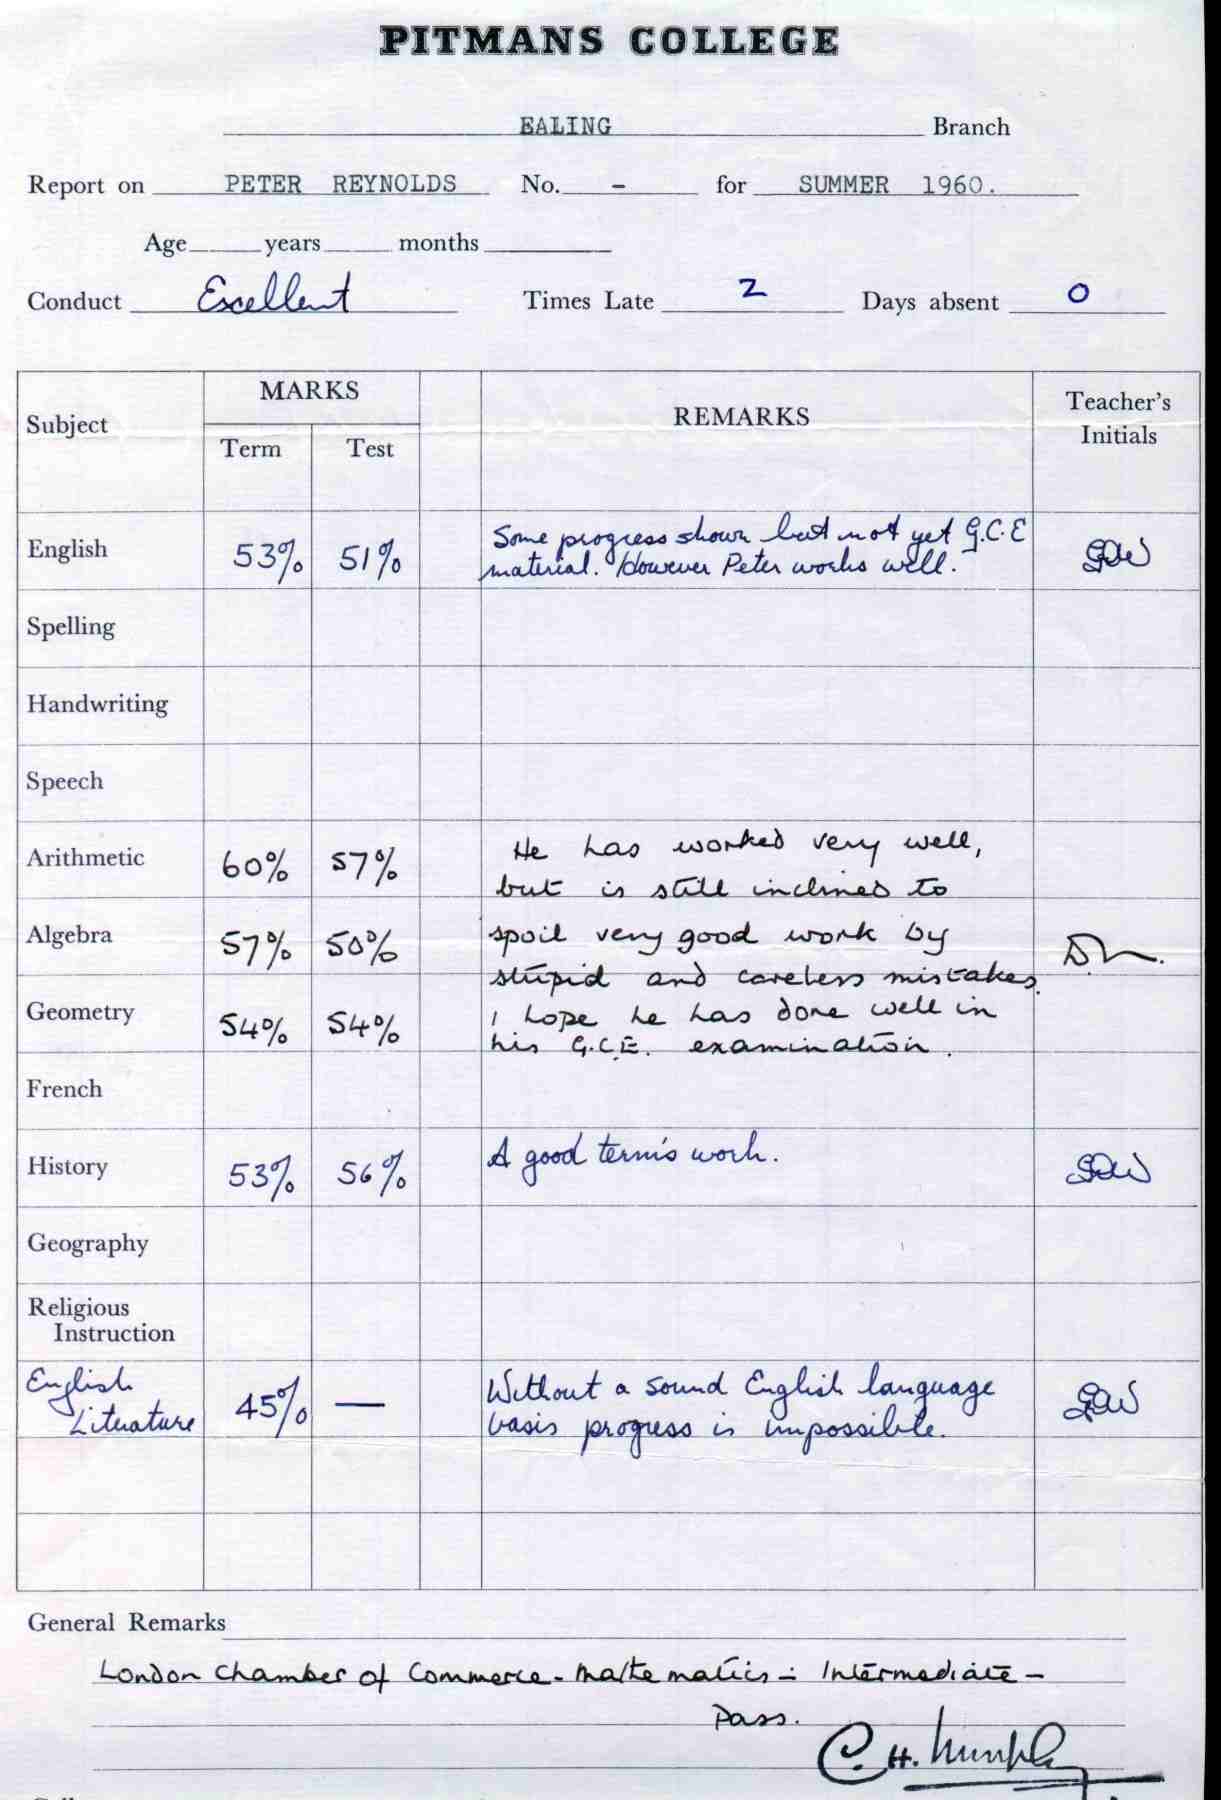 PITMANS COLLEGE
EALING Branch
Report on PETER REYNOLDS No. - for SUMMER 1960.
Age years months
Conduct Excellent Times Late 2 Days absent 0
Subject MARKS REMARKS Teacher's Initials
Term Test
English 53% 51% Some progress shown but not yet G.C.E
material. However Peter works well.
Spelling
Handwriting
Speech
Arithmetic 60% 57% He has worked very well,
but is still inclined to
Algebra 57% 50% spoil very good work by
stupid and careless mistakes.
Geometry 54% 54% I hope he has done well in
his G.C.E. examination.
French
History 53% 56% A good term's work.
Geography
Religious
Instruction
English
Literature 45% — Without a sound English language
basis progress is impossible.
General Remarks
London Chamber of Commerce - Mathematics - Intermediate -
Pass.
C.H. Murphy